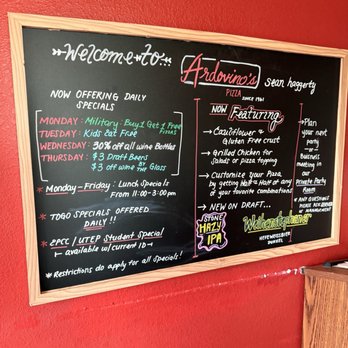 Welcome to:
Ardovino's
PIZZA
SINCE 1961
Sean haggerty
NOW OFFERING DAILY
SPECIALS
MONDAY: Military: Buy 1 Get 1 Free
PIZZAS
TUESDAY: Kids Eat Free
WEDNESDAY: 30% off all wine Bottles
THURSDAY: $3 Draft Beers
$3 off wine BY THE GLASS
* Monday - Friday: Lunch Specials
From 11:00-3:00pm
* TOGO SPECIALS OFFERED
DAILY!!
* EPCC / UTEP Student Special
available w/ current ID
* Restrictions do apply for all Specials!
NOW Featuring
→ Cauliflower &
Gluten Free crust
→ Grilled Chicken for
Salads or pizza topping
→ Customize your Pizza
by getting Half & Half of any
of your favorite combinations
→ NEW ON DRAFT...
STONE
HAZY
IPA
HEFEWEISSBIER
DUNKEL
→ Plan
your next
party
or
Business
meeting
in our
Private Party
Room
* ANY QUESTIONS
PLEASE
MANAGEMENT